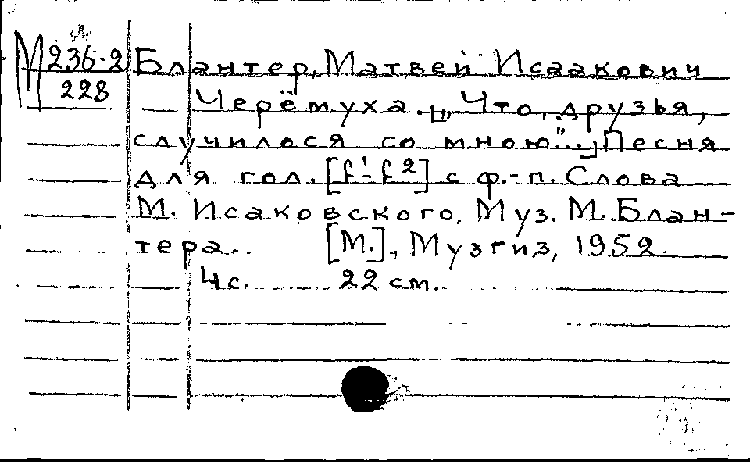 М 236-2 Блантер, Матвей Исаакович
228 Черёмуха. [„Что, друзья,
случилося со мною"..] Песня
для гол. [f¹-f²] с ф.-п. Слова
М. Исаковского. Муз. М. Блан-
тера. [М.], Музгиз, 1952.
4 с. 22 см.